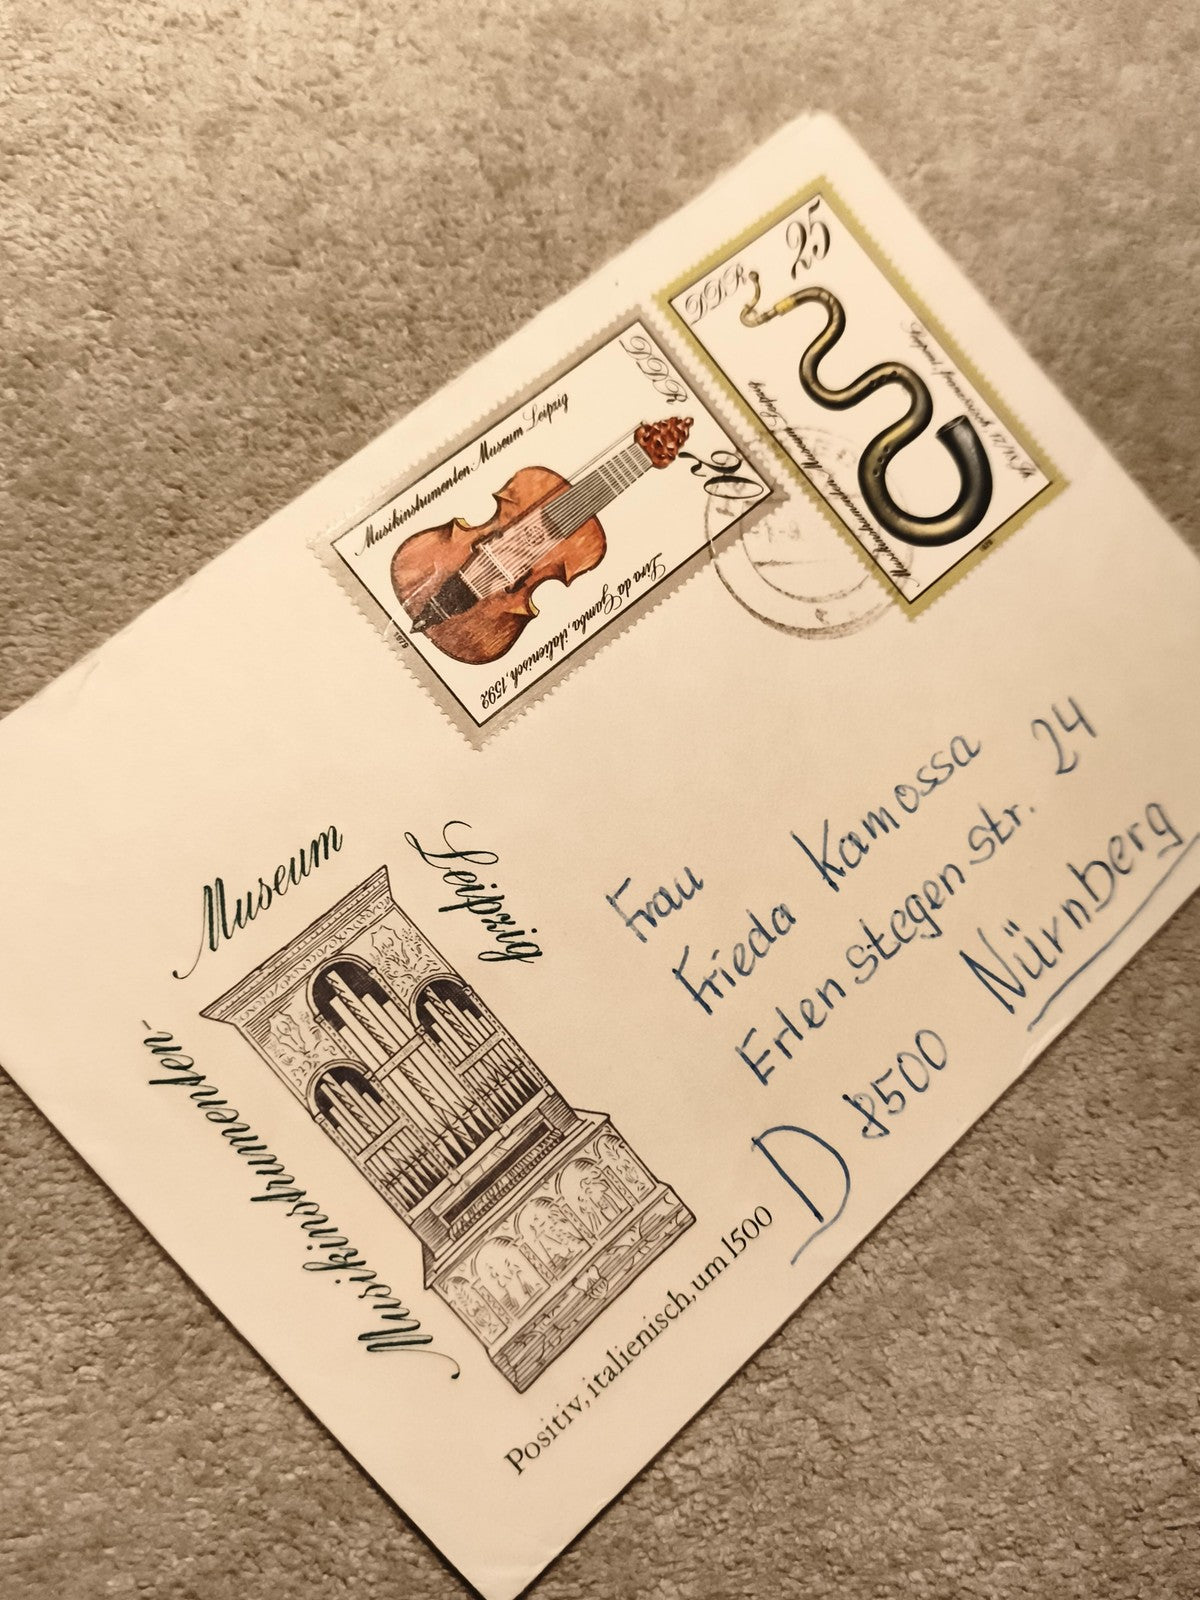 Musikinstrumenten Museum Leipzig
DDR
20
Lira da Gamba, italienisch, 1592
1979
DDR
25
Musikinstrumenten Museum Leipzig
Serpent
Musikinstrumenten-
Museum
Leipzig
Positiv, italienisch, um 1500
Frau
Frieda Kamossa
Erlenstegenstr. 24
D 8500 Nürnberg